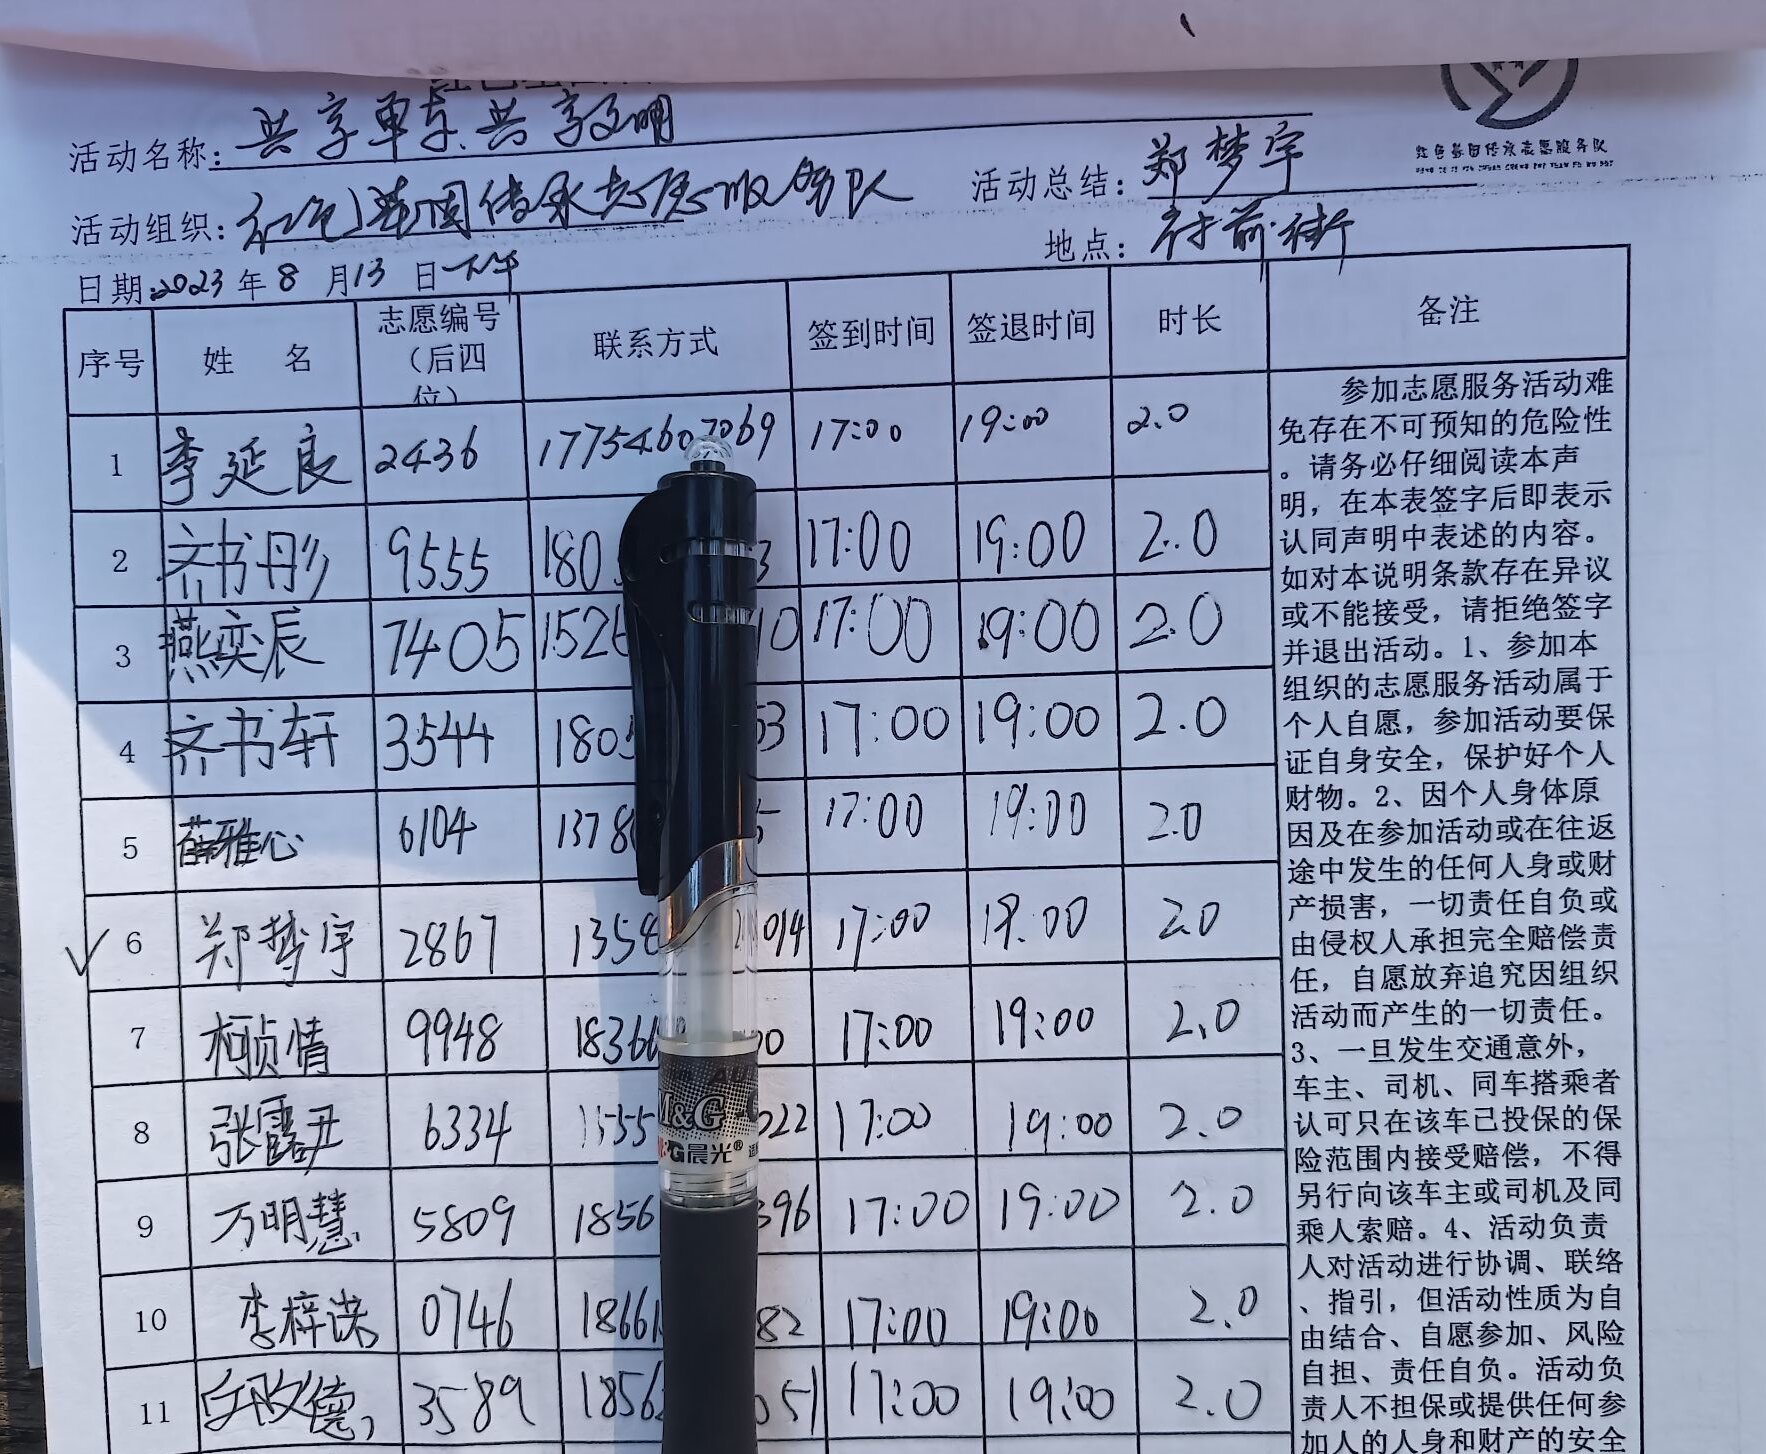 活动名称：共享单车.共享文明
活动组织：红色基因传承志愿服务队 活动总结：郑梦宇
红色基因传承志愿服务队
日期：2023年8月13日下午 地点：府前街
序号 姓名 志愿编号（后四位） 联系方式 签到时间 签退时间 时长 备注
1 李延良 2436 17754607069 17:00 19:00 2.0
2 齐书彤 9555 180 3 17:00 19:00 2.0
3 燕奕辰 7405 152 10 17:00 19:00 2.0
4 齐书轩 3544 180 53 17:00 19:00 2.0
5 薛雅心 6104 1378 5 17:00 19:00 2.0
✓ 6 郑梦宇 2867 1358 014 17:00 19:00 2.0
7 柯贞情 9948 1836 00 17:00 19:00 2.0
8 张露丹 6334 1555 022 17:00 19:00 2.0
9 万明慧 5809 1856 396 17:00 19:00 2.0
10 李梓诺 0746 1866 82 17:00 19:00 2.0
11 3589 1856 051 17:00 19:00 2.0
参加志愿服务活动难
免存在不可预知的危险性
。请务必仔细阅读本声
明，在本表签字后即表示
认同声明中表述的内容。
如对本说明条款存在异议
或不能接受，请拒绝签字
并退出活动。1、参加本
组织的志愿服务活动属于
个人自愿，参加活动要保
证自身安全，保护好个人
财物。2、因个人身体原
因及在参加活动或在往返
途中发生的任何人身或财
产损害，一切责任自负或
由侵权人承担完全赔偿责
任，自愿放弃追究因组织
活动而产生的一切责任。
3、一旦发生交通意外，
车主、司机、同车搭乘者
认可只在该车已投保的保
险范围内接受赔偿，不得
另行向该车主或司机及同
乘人索赔。4、活动负责
人对活动进行协调、联络
、指引，但活动性质为自
由结合、自愿参加、风险
自担、责任自负。活动负
责人不担保或提供任何参
加人的人身和财产的安全
M&G
晨光®